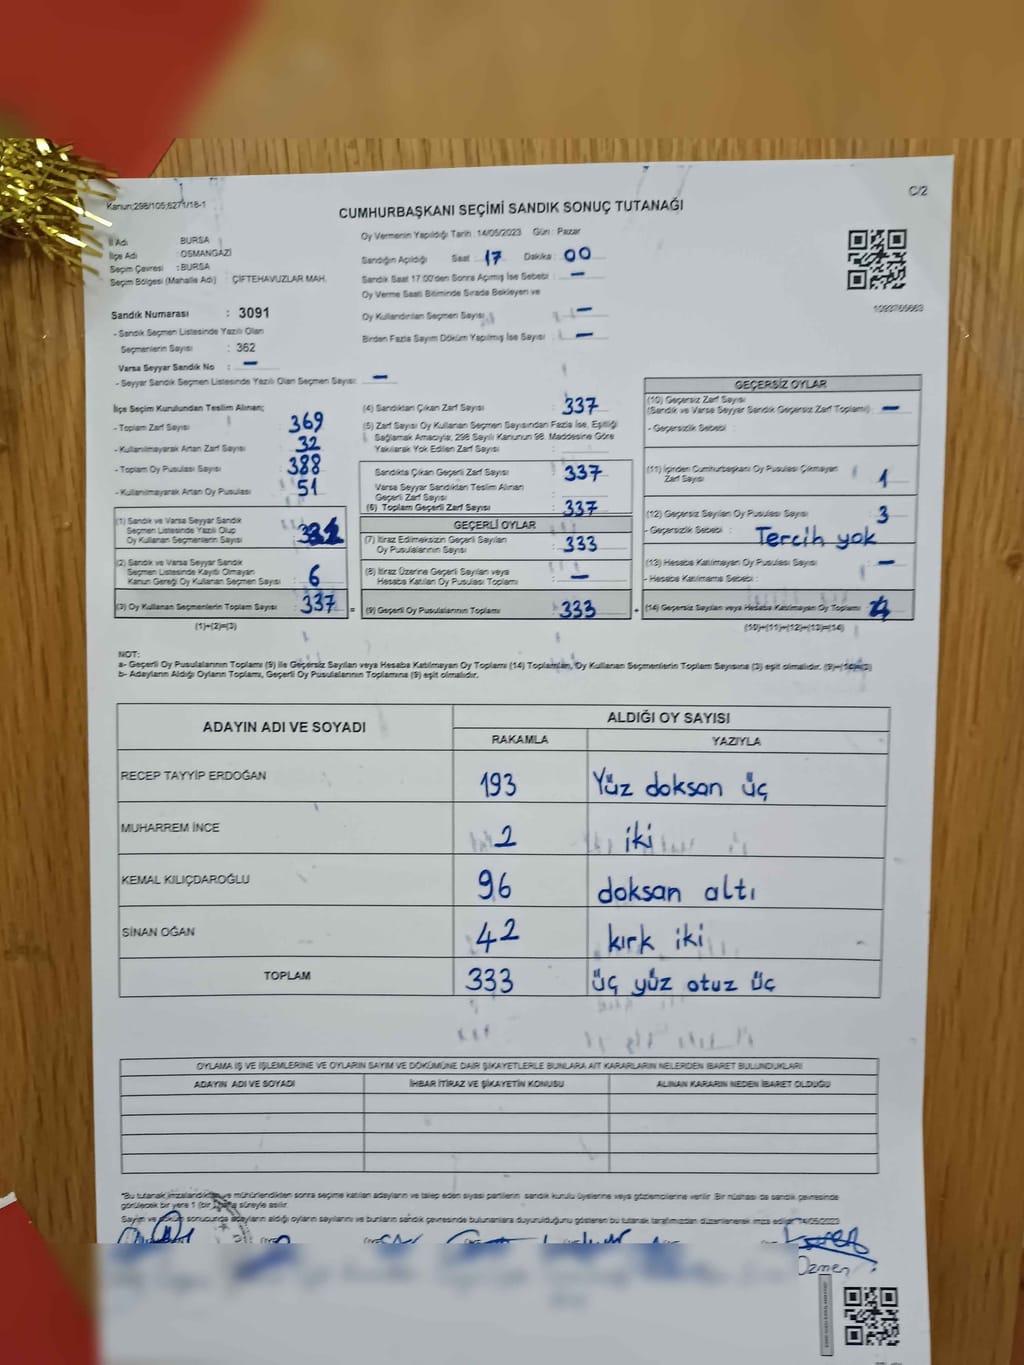 Kanun;298/105;6271/18-1
C/2
CUMHURBAŞKANI SEÇİMİ SANDIK SONUÇ TUTANAĞI
İl Adı BURSA
İlçe Adı : OSMANGAZİ
Seçim Çevresi : BURSA
Seçim Bölgesi (Mahalle Adı) ÇİFTEHAVUZLAR MAH.
Oy Vermenin Yapıldığı Tarih : 14/05/2023 Gün : Pazar
Sandığın Açıldığı Saat 17 Dakika : 00
Sandık Saat 17:00'den Sonra Açılmış İse Sebebi : —
Oy Verme Saati Bitiminde Sırada Bekleyen ve
Oy Kullandırılan Seçmen Sayısı : —
Birden Fazla Sayım Döküm Yapılmış İse Sayısı : —
1093765663
Sandık Numarası : 3091
- Sandık Seçmen Listesinde Yazılı Olan
Seçmenlerin Sayısı : 362
Varsa Seyyar Sandık No : —
- Seyyar Sandık Seçmen Listesinde Yazılı Olan Seçmen Sayısı: —
İlçe Seçim Kurulundan Teslim Alınan;
- Toplam Zarf Sayısı : 369
- Kullanılmayarak Artan Zarf Sayısı : 32
- Toplam Oy Pusulası Sayısı : 388
- Kullanılmayarak Artan Oy Pusulası : 51
(1) Sandık ve Varsa Seyyar Sandık
Seçmen Listesinde Yazılı Olup
Oy Kullanan Seçmenlerin Sayısı :
(2) Sandık ve Varsa Seyyar Sandık
Seçmen Listesinde Kayıtlı Olmayan
Kanun Gereği Oy Kullanan Seçmen Sayısı : 6
(3) Oy Kullanan Seçmenlerin Toplam Sayısı : 337 =
(1)+(2)=(3)
(4) Sandıktan Çıkan Zarf Sayısı : 337
(5) Zarf Sayısı Oy Kullanan Seçmen Sayısından Fazla İse, Eşitliği
Sağlamak Amacıyla, 298 Sayılı Kanunun 98. Maddesine Göre
Yakılarak Yok Edilen Zarf Sayısı :
Sandıkta Çıkan Geçerli Zarf Sayısı : 337
Varsa Seyyar Sandıktan Teslim Alınan
Geçerli Zarf Sayısı :
(6) Toplam Geçerli Zarf Sayısı : 337
GEÇERLİ OYLAR
(7) İtiraz Edilmeksizin Geçerli Sayılan
Oy Pusulalarının Sayısı : 333
(8) İtiraz Üzerine Geçerli Sayılan veya
Hesaba Katılan Oy Pusulası Toplamı : —
(9) Geçerli Oy Pusulalarının Toplamı : 333 +
GEÇERSİZ OYLAR
(10) Geçersiz Zarf Sayısı
(Sandık ve Varsa Seyyar Sandık Geçersiz Zarf Toplamı) : —
- Geçersizlik Sebebi :
(11) İçinden Cumhurbaşkanı Oy Pusulası Çıkmayan
Zarf Sayısı : 1
(12) Geçersiz Sayılan Oy Pusulası Sayısı : 3
- Geçersizlik Sebebi : Tercih yok
(13) Hesaba Katılmayan Oy Pusulası Sayısı : —
- Hesaba Katılmama Sebebi :
(14) Geçersiz Sayılan veya Hesaba Katılmayan Oy Toplamı : 4
(10)+(11)+(12)+(13)=(14)
NOT:
a- Geçerli Oy Pusulalarının Toplamı (9) ile Geçersiz Sayılan veya Hesaba Katılmayan Oy Toplamı (14) Toplamları, Oy Kullanan Seçmenlerin Toplam Sayısına (3) eşit olmalıdır. (9)+(14)=(3)
b- Adayların Aldığı Oyların Toplamı, Geçerli Oy Pusulalarının Toplamına (9) eşit olmalıdır.
ADAYIN ADI VE SOYADI ALDIĞI OY SAYISI
RAKAMLA YAZIYLA
RECEP TAYYİP ERDOĞAN 193 Yüz doksan üç
MUHARREM İNCE 2 iki
KEMAL KILIÇDAROĞLU 96 doksan altı
SİNAN OĞAN 42 kırk iki
TOPLAM 333 üç yüz otuz üç
OYLAMA İŞ VE İŞLEMLERİNE VE OYLARIN SAYIM VE DÖKÜMÜNE DAİR ŞİKAYETLERLE BUNLARA AİT KARARLARIN NELERDEN İBARET BULUNDUKLARI
ADAYIN ADI VE SOYADI İHBAR İTİRAZ VE ŞİKAYETİN KONUSU ALINAN KARARIN NEDEN İBARET OLDUĞU
*Bu tutanak imzalandıktan ve mühürlendikten sonra seçime katılan adayların ve talep eden siyasi partilerin sandık kurulu üyelerine veya gözlemcilerine verilir. Bir nüshası da sandık çevresinde
görülecek bir yere 1 (bir) hafta süreyle asılır.
Sayım ve döküm sonucunda adayların aldığı oyların sayılarını ve bunların sandık çevresinde bulunanlara duyurulduğunu gösteren bu tutanak tarafımızdan düzenlenerek imza edildi. 14/05/2023
Özmen